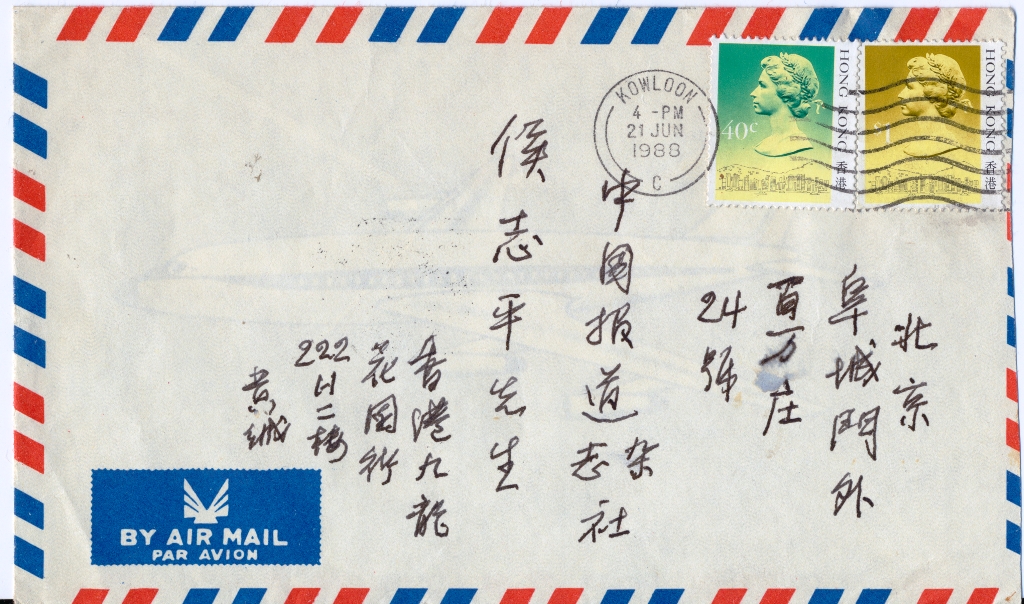 北京
阜城門外
百万庄
24號
中国报道杂志社
侯志平先生
香港九龍
花園街
222号二楼
黄
HONG KONG 香港
40c
HONG KONG 香港
$1
KOWLOON
4 -PM
21 JUN
1988
C
BY AIR MAIL
PAR AVION